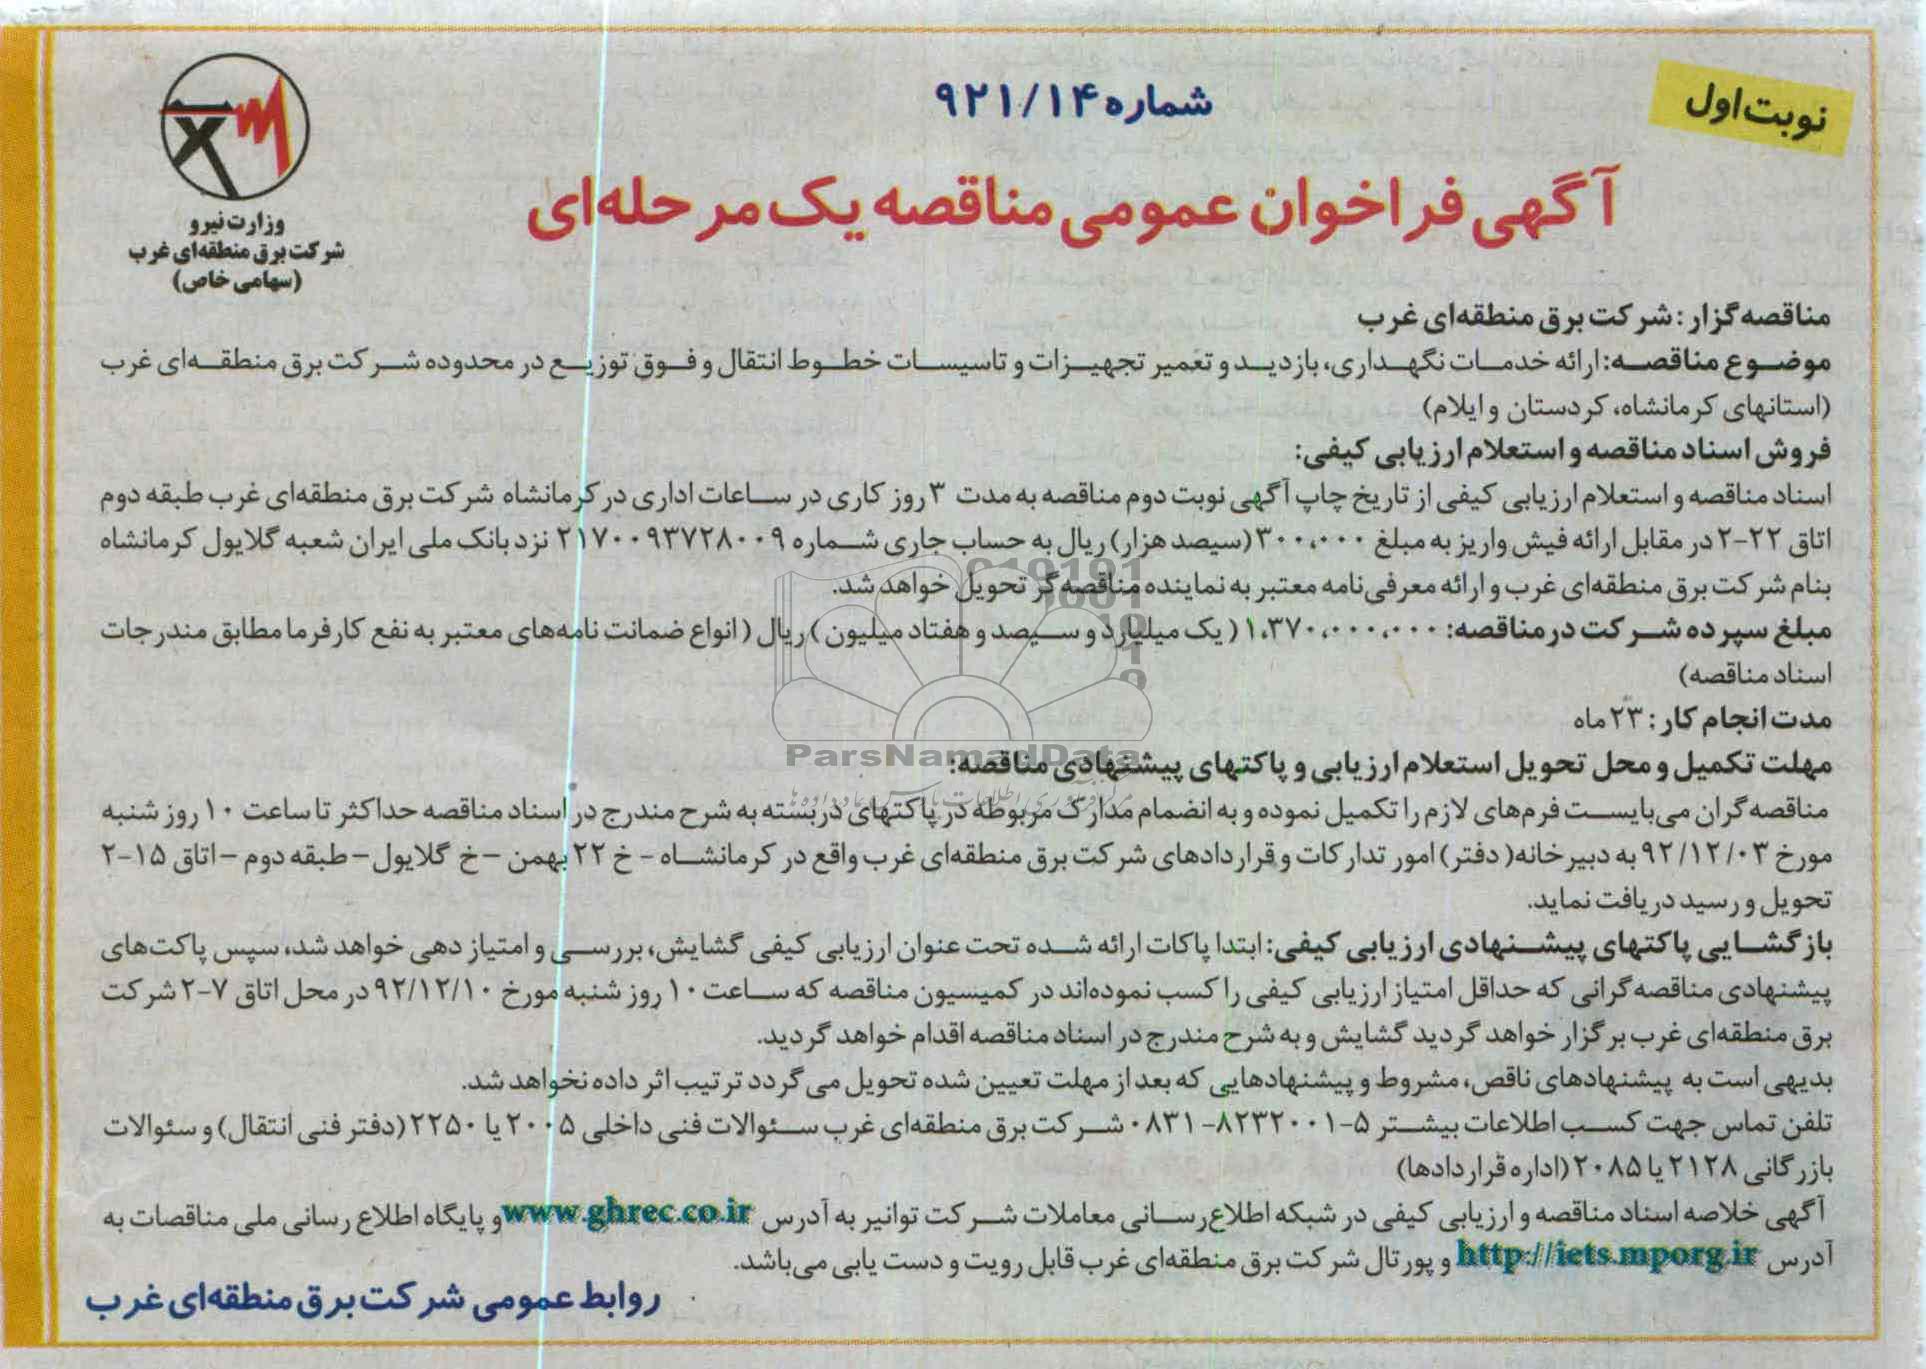 نوبت اول
شماره ۹۲۱/۱۴
آگهی فراخوان عمومی مناقصه یک مرحله‌ای
وزارت نیرو
شرکت برق منطقه‌ای غرب
(سهامی خاص)
مناقصه گزار : شرکت برق منطقه‌ای غرب
موضوع مناقصه: ارائه خدمات نگهداری، بازدید و تعمیر تجهیزات و تاسیسات خطوط انتقال و فوق توزیع در محدوده شرکت برق منطقه‌ای غرب
(استانهای کرمانشاه، کردستان و ایلام)
فروش اسناد مناقصه و استعلام ارزیابی کیفی:
اسناد مناقصه و استعلام ارزیابی کیفی از تاریخ چاپ آگهی نوبت دوم مناقصه به مدت ۳ روز کاری در ساعات اداری در کرمانشاه شرکت برق منطقه‌ای غرب طبقه دوم
اتاق ۲۲-۲ در مقابل ارائه فیش واریز به مبلغ ۳۰۰،۰۰۰ (سیصد هزار) ریال به حساب جاری شماره ۲۱۷۰۰۹۳۷۲۸۰۰۹ نزد بانک ملی ایران شعبه گلایول کرمانشاه
بنام شرکت برق منطقه‌ای غرب و ارائه معرفی‌نامه معتبر به نماینده مناقصه‌گر تحویل خواهد شد.
مبلغ سپرده شرکت در مناقصه: ۱،۳۷۰،۰۰۰،۰۰۰ ( یک میلیارد و سیصد و هفتاد میلیون ) ریال ( انواع ضمانت نامه‌های معتبر به نفع کارفرما مطابق مندرجات
اسناد مناقصه)
مدت انجام کار : ۲۳ ماه
ParsNamadData
مهلت تکمیل و محل تحویل استعلام ارزیابی و پاکتهای پیشنهادی مناقصه:
مناقصه گران می‌بایست فرم‌های لازم را تکمیل نموده و به انضمام مدارک مربوطه در پاکتهای دربسته به شرح مندرج در اسناد مناقصه حداکثر تا ساعت ۱۰ روز شنبه
مورخ ۹۲/۱۲/۰۳ به دبیرخانه( دفتر) امور تدارکات و قراردادهای شرکت برق منطقه‌ای غرب واقع در کرمانشاه - خ ۲۲ بهمن – خ گلایول – طبقه دوم – اتاق ۱۵-۲
تحویل و رسید دریافت نماید.
بازگشایی پاکتهای پیشنهادی ارزیابی کیفی: ابتدا پاکات ارائه شده تحت عنوان ارزیابی کیفی گشایش، بررسی و امتیاز دهی خواهد شد، سپس پاکت‌های
پیشنهادی مناقصه گرانی که حداقل امتیاز ارزیابی کیفی را کسب نموده‌اند در کمیسیون مناقصه که ساعت ۱۰ روز شنبه مورخ ۹۲/۱۲/۱۰ در محل اتاق ۷-۲ شرکت
برق منطقه‌ای غرب برگزار خواهد گردید گشایش و به شرح مندرج در اسناد مناقصه اقدام خواهد گردید.
بدیهی است به پیشنهادهای ناقص، مشروط و پیشنهادهایی که بعد از مهلت تعیین شده تحویل می گردد ترتیب اثر داده نخواهد شد.
تلفن تماس جهت کسب اطلاعات بیشتر ۵-۸۲۳۲۰۰۱-۰۸۳۱ شرکت برق منطقه‌ای غرب سئوالات فنی داخلی ۲۰۰۵ یا ۲۲۵۰ (دفتر فنی انتقال) و سئوالات
بازرگانی ۲۱۲۸ یا ۲۰۸۵ (اداره قراردادها)
آگهی خلاصه اسناد مناقصه و ارزیابی کیفی در شبکه اطلاع‌رسانی معاملات شرکت توانیر به آدرس www.ghrec.co.ir و پایگاه اطلاع رسانی ملی مناقصات به
آدرس http://iets.mporg.ir و پورتال شرکت برق منطقه‌ای غرب قابل رویت و دست یابی می‌باشد.
روابط عمومی شرکت برق منطقه‌ای غرب